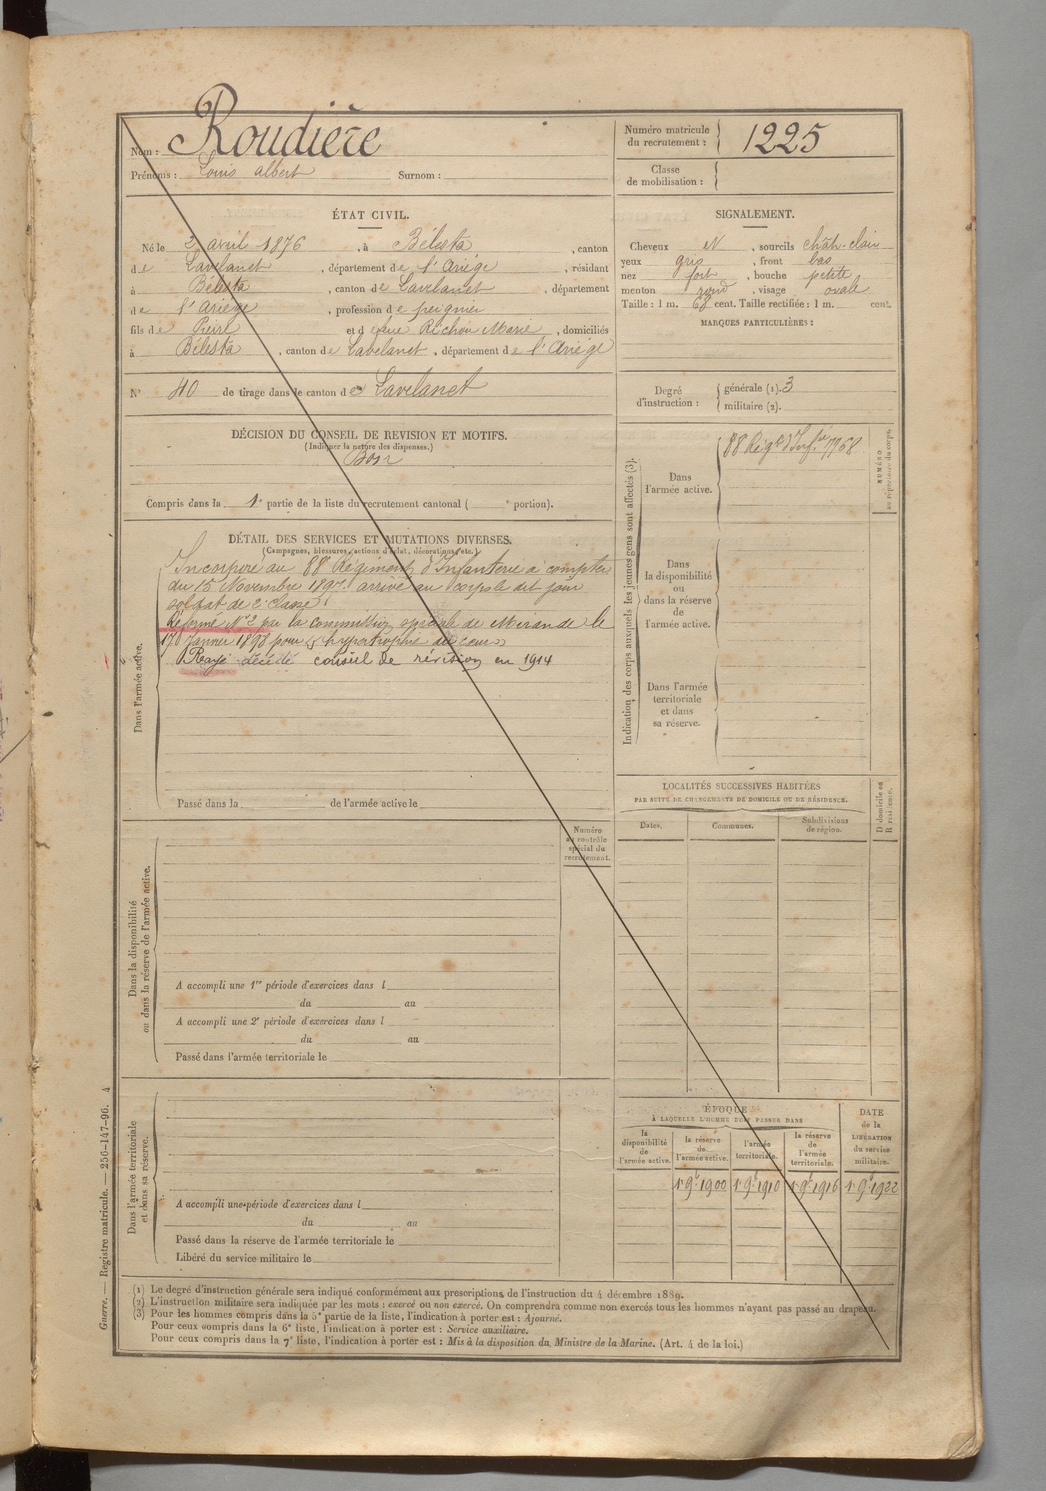 Nom : Roudière
Prénoms : Louis albert Surnom :
Numéro matricule du recrutement : 1225
Classe de mobilisation :
ÉTAT CIVIL.
Né le 2 avril 1876, à Bélesta, canton
de Lavelanet, département de l'Ariége, résidant
à Bélesta, canton de Lavelanet, département
de l'Ariége, profession de peignier
fils de Pierre et de feue Richou Marie, domiciliés
à Bélesta, canton de Lavelanet, département de l'Ariége
SIGNALEMENT.
Cheveux N, sourcils chât-clair
yeux gris, front bas
nez fort, bouche petite
menton rond, visage ovale
Taille : 1 m. 68 cent. Taille rectifiée : 1 m. cent.
MARQUES PARTICULIÈRES :
N° 40 de tirage dans le canton de Lavelanet
Degré d'instruction : générale (1). 3
militaire (2).
DÉCISION DU CONSEIL DE REVISION ET MOTIFS.
(Indiquer la nature des dispenses.)
Bon
Compris dans la 1e partie de la liste du recrutement cantonal ( e portion).
DÉTAIL DES SERVICES ET MUTATIONS DIVERSES.
(Campagnes, blessures, actions d'éclat, décorations, etc.)
Dans l'armée active.
Incorporé au 88e Régiment d'Infanterie à compter
du 15 Novembre 1897 arrivé au corps le dit jour
soldat de 2e classe
Réformé N°2 par la commission spéciale de Mirande le
17 Janvier 1898 pour hypertrophie du coeur
Rayé décédé conseil de révision en 1914
Passé dans la de l'armée active le
Indication des corps auxquels les jeunes gens sont affectés (3).
NUMÉRO au répertoire du corps.
Dans l'armée active.
88 Régt d'Infie 7768
Dans la disponibilité ou dans la réserve de l'armée active.
Dans l'armée territoriale et dans sa réserve.
LOCALITÉS SUCCESSIVES HABITÉES
PAR SUITE DE CHANGEMENTS DE DOMICILE OU DE RÉSIDENCE.
Dates. Communes. Subdivisions de région. D domicile ou R résidence.
Numéro au contrôle spécial du recrutement.
Dans la disponibilité ou dans la réserve de l'armée active.
A accompli une 1re période d'exercices dans l
du au
A accompli une 2e période d'exercices dans l
du au
Passé dans l'armée territoriale le
Dans l'armée territoriale et dans sa réserve.
A accompli une période d'exercices dans l
du au
Passé dans la réserve de l'armée territoriale le
Libéré du service militaire le
ÉPOQUE
À LAQUELLE L'HOMME DOIT PASSER DANS
la disponibilité de l'armée active.
la réserve de l'armée active.
l'armée territoriale.
la réserve de l'armée territoriale.
DATE de la LIBÉRATION du service militaire.
1r 9b 1900 1r 9b 1910 1r 9b 1916 1r 9b 1922
(1) Le degré d'instruction générale sera indiqué conformément aux prescriptions de l'instruction du 4 décembre 1889.
(2) L'instruction militaire sera indiquée par les mots : exercé ou non exercé. On comprendra comme non exercés tous les hommes n'ayant pas passé au drapeau.
(3) Pour les hommes compris dans la 5e partie de la liste, l'indication à porter est : Ajourné.
Pour ceux compris dans la 6e liste, l'indication à porter est : Service auxiliaire.
Pour ceux compris dans la 7e liste, l'indication à porter est : Mis à la disposition du Ministre de la Marine. (Art. 4 de la loi.)
Guerre. — Registre matricule. — 256-147-96. 4